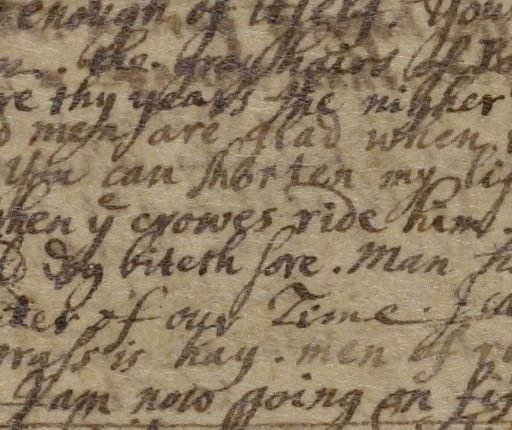 enough of it self. You
the grey hairs of
re thy years the nigher
men are glad when
You can shorten my li
hen yᵉ crowes ride him.
d dog biteth sore. Man
ter of our Time. I a
grass is hay. men of r
I am now going on fi